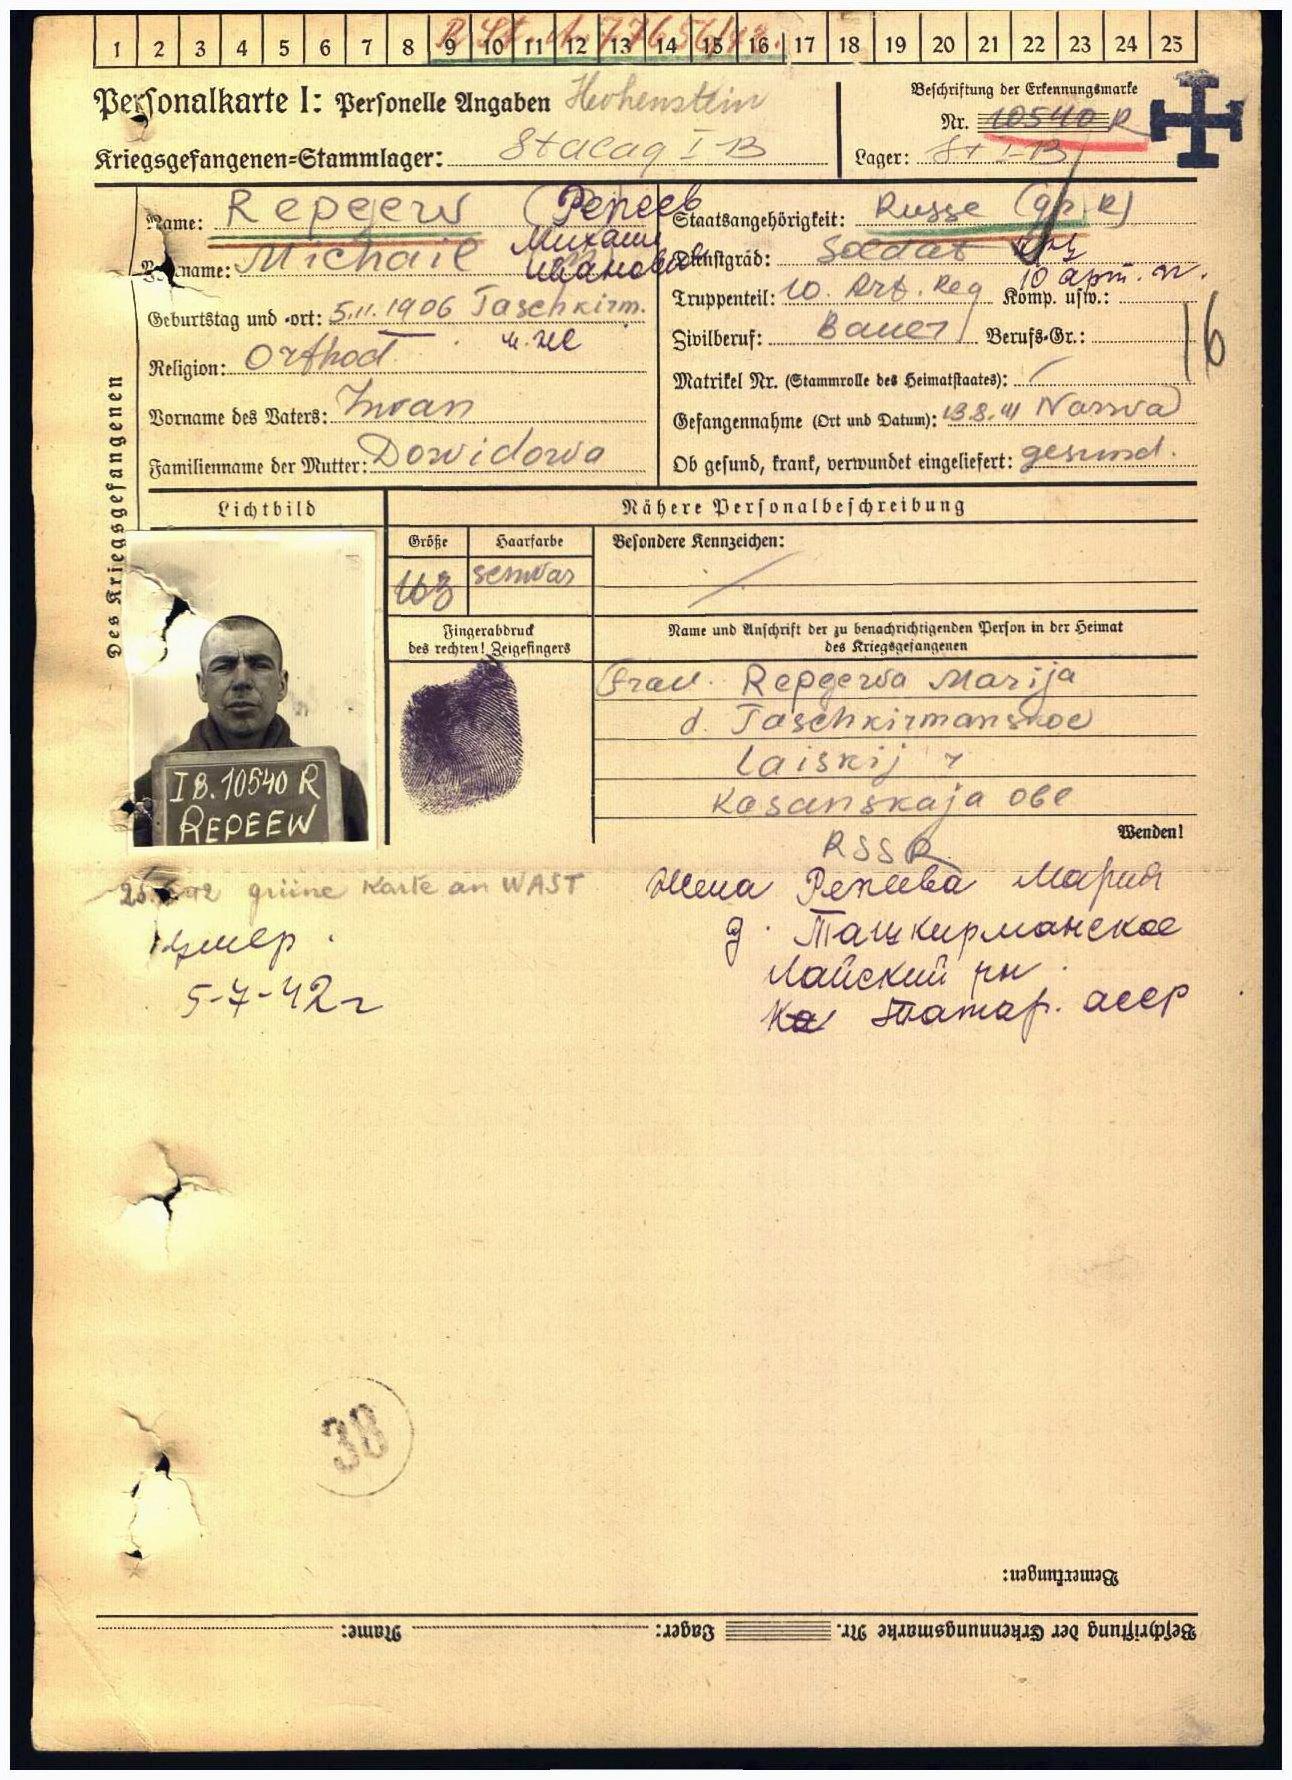 1 2 3 4 5 6 7 8 9 10 11 12 13 14 15 16 17 18 19 20 21 22 23 24 25
Personalkarte I: Personelle Angaben Hohenstein
Kriegsgefangenen-Stammlager: Stalag I B
Beschriftung der Erkennungsmarke
Nr. 10540 R
Lager: St I-B
Des Kriegsgefangenen
Name: Repeew (Репеев
Vorname: Michail Михаил Иванович
Geburtstag und -ort: 5.11.1906 Taschkirm.
Religion: Orthod.
Vorname des Vaters: Iwan
Familienname der Mutter: Dowidowa
Staatsangehörigkeit: Russe (gr R)
Dienstgrad: Soldat
10 арт. п.
Truppenteil: 10. Art. Reg Komp. usw.:
Zivilberuf: Bauer Berufs-Gr.:
16
Matrikel Nr. (Stammrolle des Heimatstaates):
Gefangennahme (Ort und Datum): 13.8.41 Narwa
Ob gesund, krank, verwundet eingeliefert: gesund.
Lichtbild
Nähere Personalbeschreibung
Größe Haarfarbe Besondere Kennzeichen:
163 schwar
Fingerabdruck
des rechten! Zeigefingers
Name und Anschrift der zu benachrichtigenden Person in der Heimat
des Kriegsgefangenen
Frau. Repeewa Marija
d. Taschkirmanskoe
Laiskij r
Kasanskaja Obl
RSSR
Wenden!
I B. 10540 R
REPEEW
grüne Karte an WAST
умер.
5-7-42 г
Жена Репеева Мария
д. Ташкирманское
Лайский рн.
Ка Татар. асср
38
Bemerkungen:
Beschriftung der Erkennungsmarke Nr. Lager: Name: